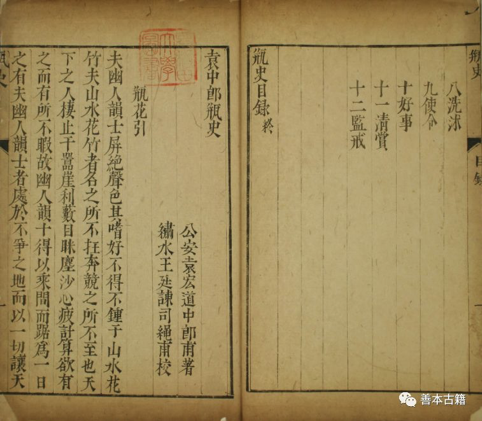 瓶史
目錄
八洗沐
九使令
十好事
十一清賞
十二監戒
瓶史目錄 終
袁中郎瓶史
公安袁宏道中郎甫著
繡水王廷諫司繩甫校
瓶花引
夫幽人韻士屏絶聲色其嗜好不得不鍾于山水花
竹夫山水花竹者名之所不在奔競之所不至也天
下之人棲止于囂崖利藪目眯塵沙心疲計算欲有
之而有所不暇故幽人韻士得以乘間而踞爲一日
之有夫幽人韻士者處於不爭之地而以一切讓天
瓶史
善本古籍